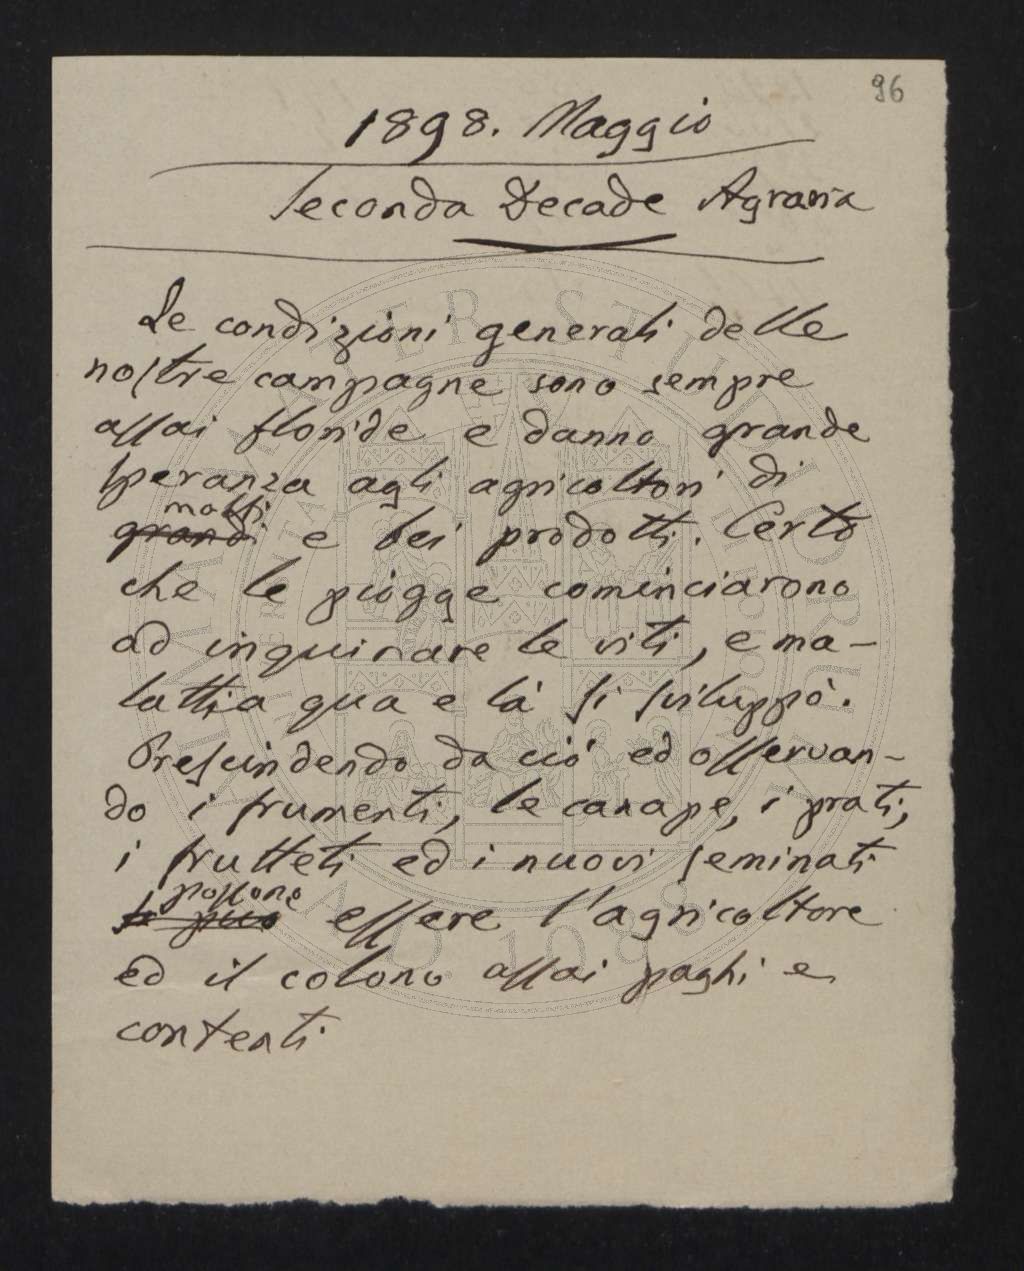 96
1898. Maggio
Seconda Decade Agraria
Le condizioni generali delle
nostre campagne sono sempre
assai floride e danno grande
speranza agli agricoltori di
molti
grandi e bei prodotti. Certo
che le piogge cominciarono
ad inquinare le viti, e ma-
lattia qua e là si sviluppò.
Prescindendo da ciò ed osservan-
do i frumenti, le canape, i prati,
i frutteti ed i nuovi seminati
possono
si può essere l'agricoltore
ed il colono assai paghi e
contenti
ALMA MATER STUDIORUM
A.D. 1088